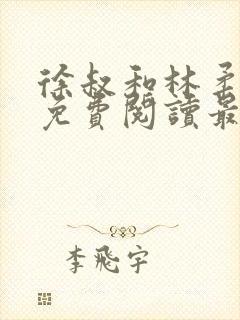 徐叔和林柔
免費閱讀最
李飛宇